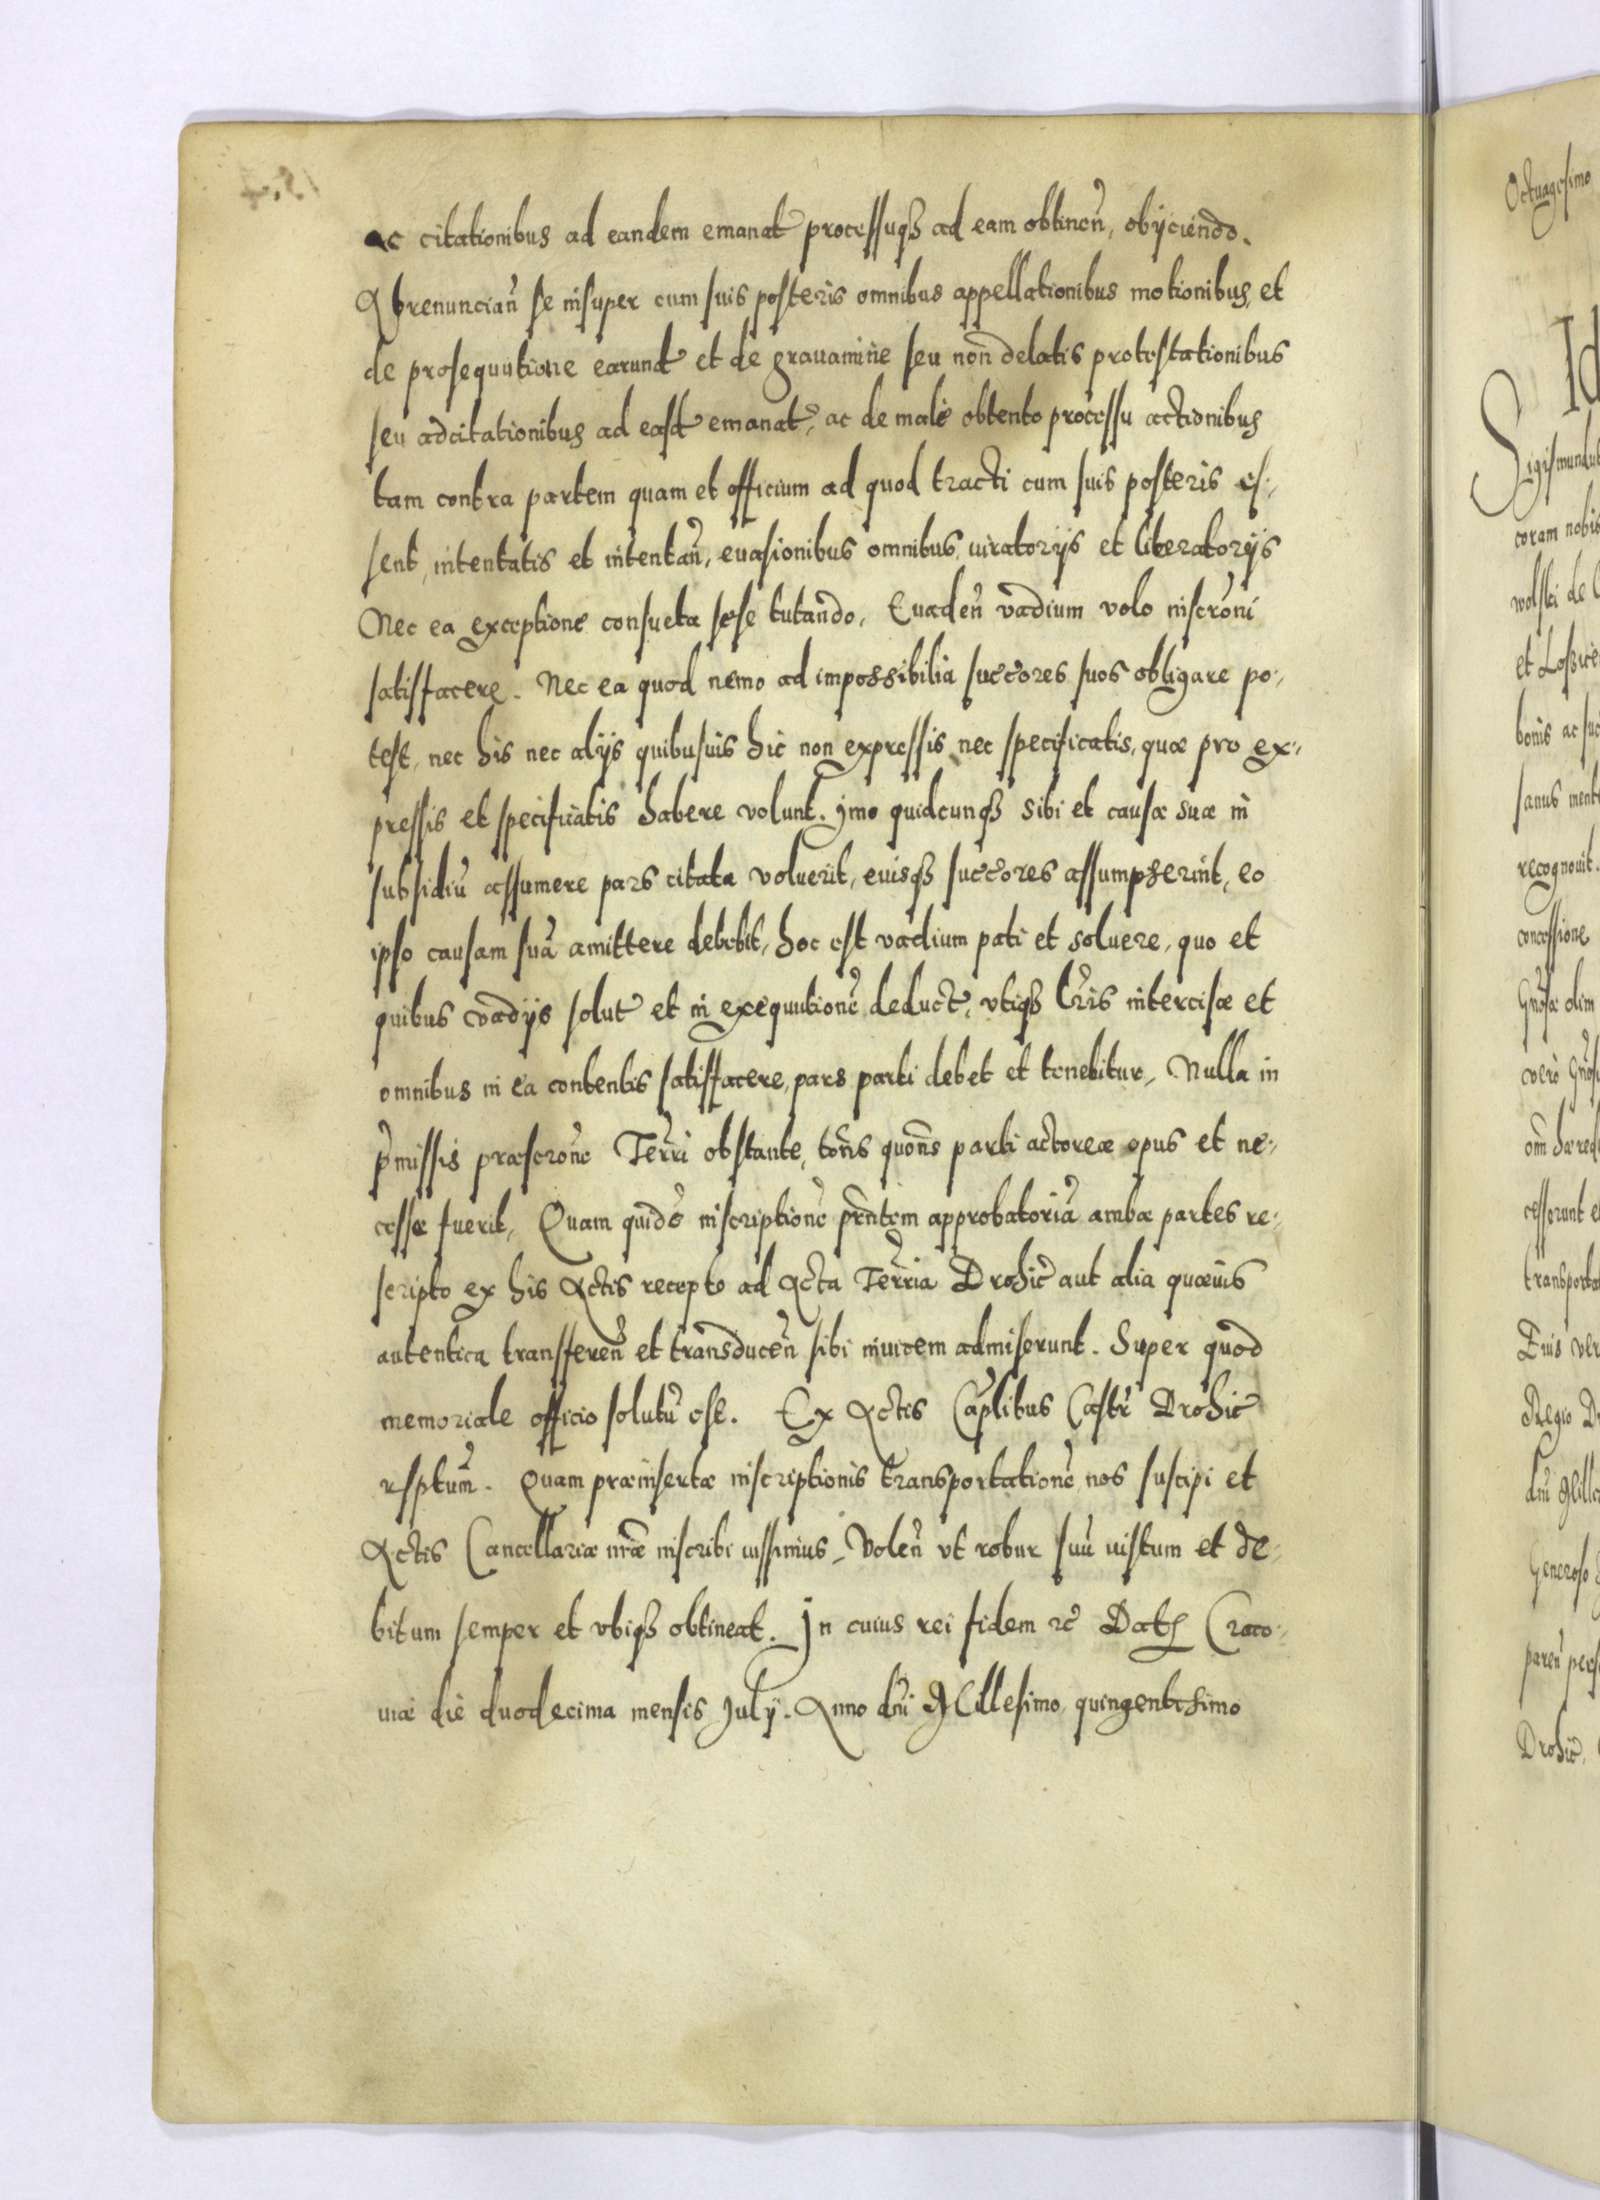 ac citationibus ad eandem emanat processuqȝ ad eam obtinen̄, obÿciendo.
Abrenuncian̄ se insuper cum suis posteris omnibus appellationibus motionibus, et
de prosequutione earund et de grauamine seu non delatis protestationibus
seu adcitationibus ad easd emanat, ac de male obtento processu actionibus
tam contra partem quam et officium ad quod tracti cum suis posteris es-
sent, intentatis et intentan̄, euasionibus omnibus iuratorÿs et liberatorÿs
Nec ea exceptione consueta sese tutando, Euaden̄ vadium volo inscrōni
satisfacere. Nec ea quod nemo ad impossibilia succ̄ores suos obligare po-
test, nec his nec alÿs quibusuis hic non expressis nec specificatis, quæ pro ex-
pressis et specificatis habere volunt. Jmo quidcunqȝ sibi et causæ suæ in
subsidiū assumere pars citata voluerit, euisqȝ succ̄ores assumpserint, eo
ipso causam suā amittere debebit, hoc est vadium pati et soluere, quo et
quibus vadÿs solut et in exequutionē deduct, vtiqȝ l̄ris intercisæ et
omnibus in ea contentis satisfacere, pars parti debet et tenebitur, Nulla in
p̄missis præscrōne Terr̄i obstante, to̅n̅s quo̅n̅s parti actoreæ opus et ne-
cesse fuerit, Quam quidē inscriptionē pr̄ntem approbatoriā ambæ partes re-
scripto ex his Actis recepto ad Acta Terr̄ia Drohic̄ aut alia quæuis
autentica transferen̄ et transducen̄ sibi inuicem admiserunt. Super quod
memoriale officio solutū ese. Ex Actis Cap̄litibus Castr̄ Drohic̄
rsptum̄. Quam præinsertæ inscriptionis transportationē nos suscipi et
Actis Cancellariæ nr̄æ inscribi iussimus, Volen̄ vt robur suū iustum et de-
bitum semper et vbiqȝ obtineat. Jn cuius rei fidem ꝛc̄ Dat Craco-
uiæ die duodecima mensis Julÿ. Anno dn̄i Millesimo quingentesimo
Octuagesimo
Id
Sigismundus
coram nobis
wolski de
et Losice
bonis ac suc
sanus mente
recognouit.
concessione
Gn̄osæ olim
vero Gn̄osi
om̄ hæred
cesserunt et
transportat
Eius ver
Regio Dr
dn̄i Mille
Generoso
paren̄ perso
Drohic̄,